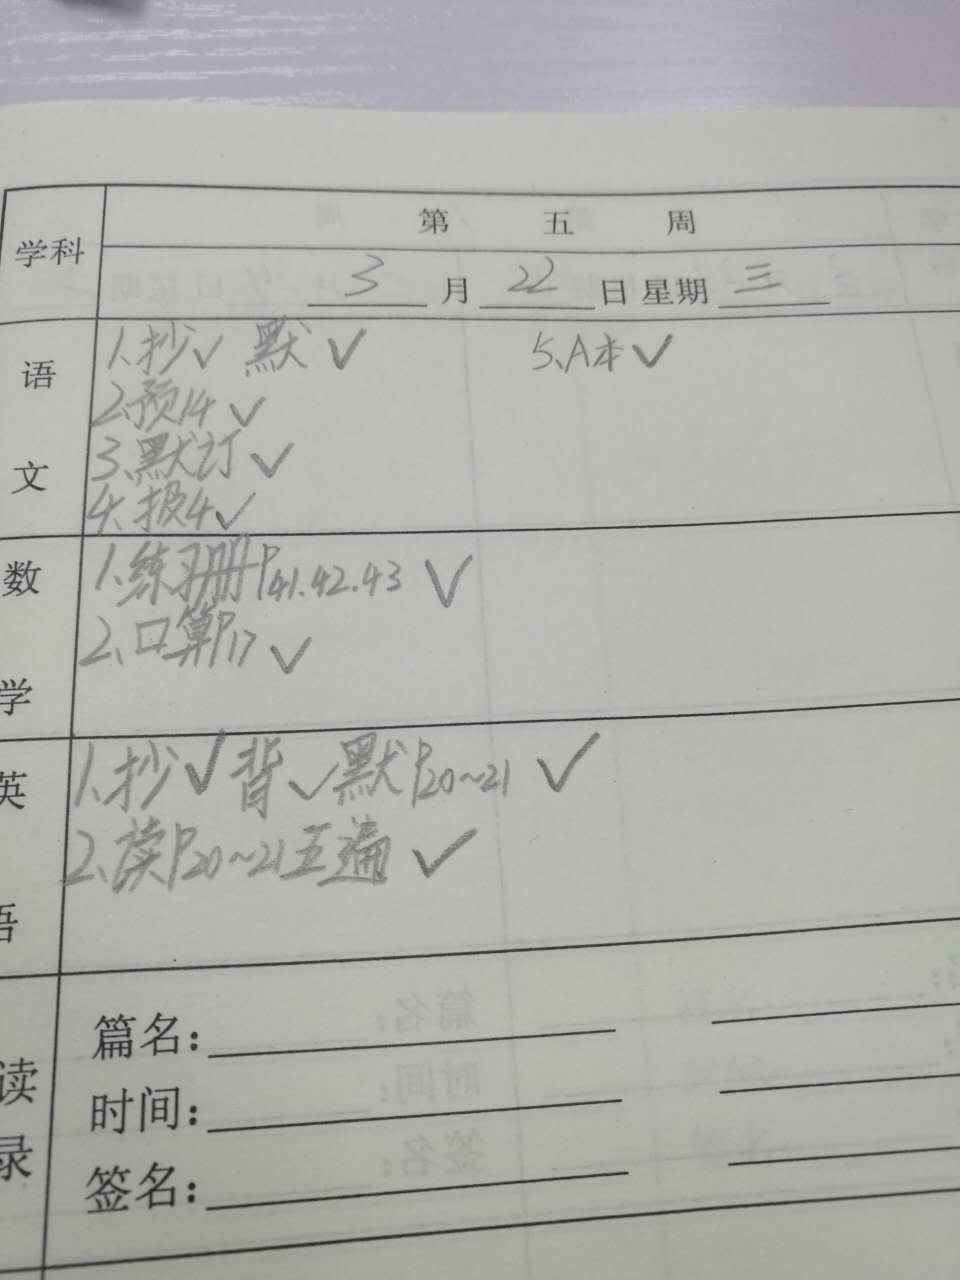 学科
第 五 周
3 月 22 日 星期 三
语文
1.抄✓ 默✓
2.预14✓
3.默订✓
4.报4✓
5.A本✓
数学
1.练习册P41.42.43 ✓
2.口算P17 ✓
英语
1.抄✓背✓默P20~21 ✓
2.读P20~21五遍 ✓
读
录
篇名:
时间:
签名: